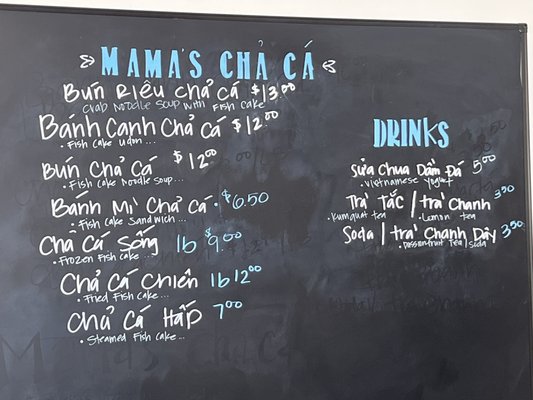 MAMA'S CHẢ CÁ
BÚN RIÊU CHẢ CÁ $13.00
CRAB NOODLE SOUP WITH FISH CAKE
BÁNH CANH CHẢ CÁ $12.00
• FISH CAKE UDON ...
BÚN CHẢ CÁ $12.00
• FISH CAKE NOODLE SOUP ...
BÁNH MÌ CHẢ CÁ • $6.50
• FISH CAKE SANDWICH ...
CHẢ CÁ SỐNG lb $9.00
• FROZEN FISH CAKE ...
CHẢ CÁ CHIÊN lb 12.00
• FRIED FISH CAKE ...
CHẢ CÁ HẤP 7.00
• STEAMED FISH CAKE ...
DRINKS
SỬA CHUA DẦM ĐÁ 5.00
• VIETNAMESE YOGURT
TRÀ TẮC / TRÀ CHANH 3.50
• KUMQUAT TEA • LEMON TEA
SODA / TRÀ CHANH DÂY 3.50
• PASSIONFRUIT TEA / SODA